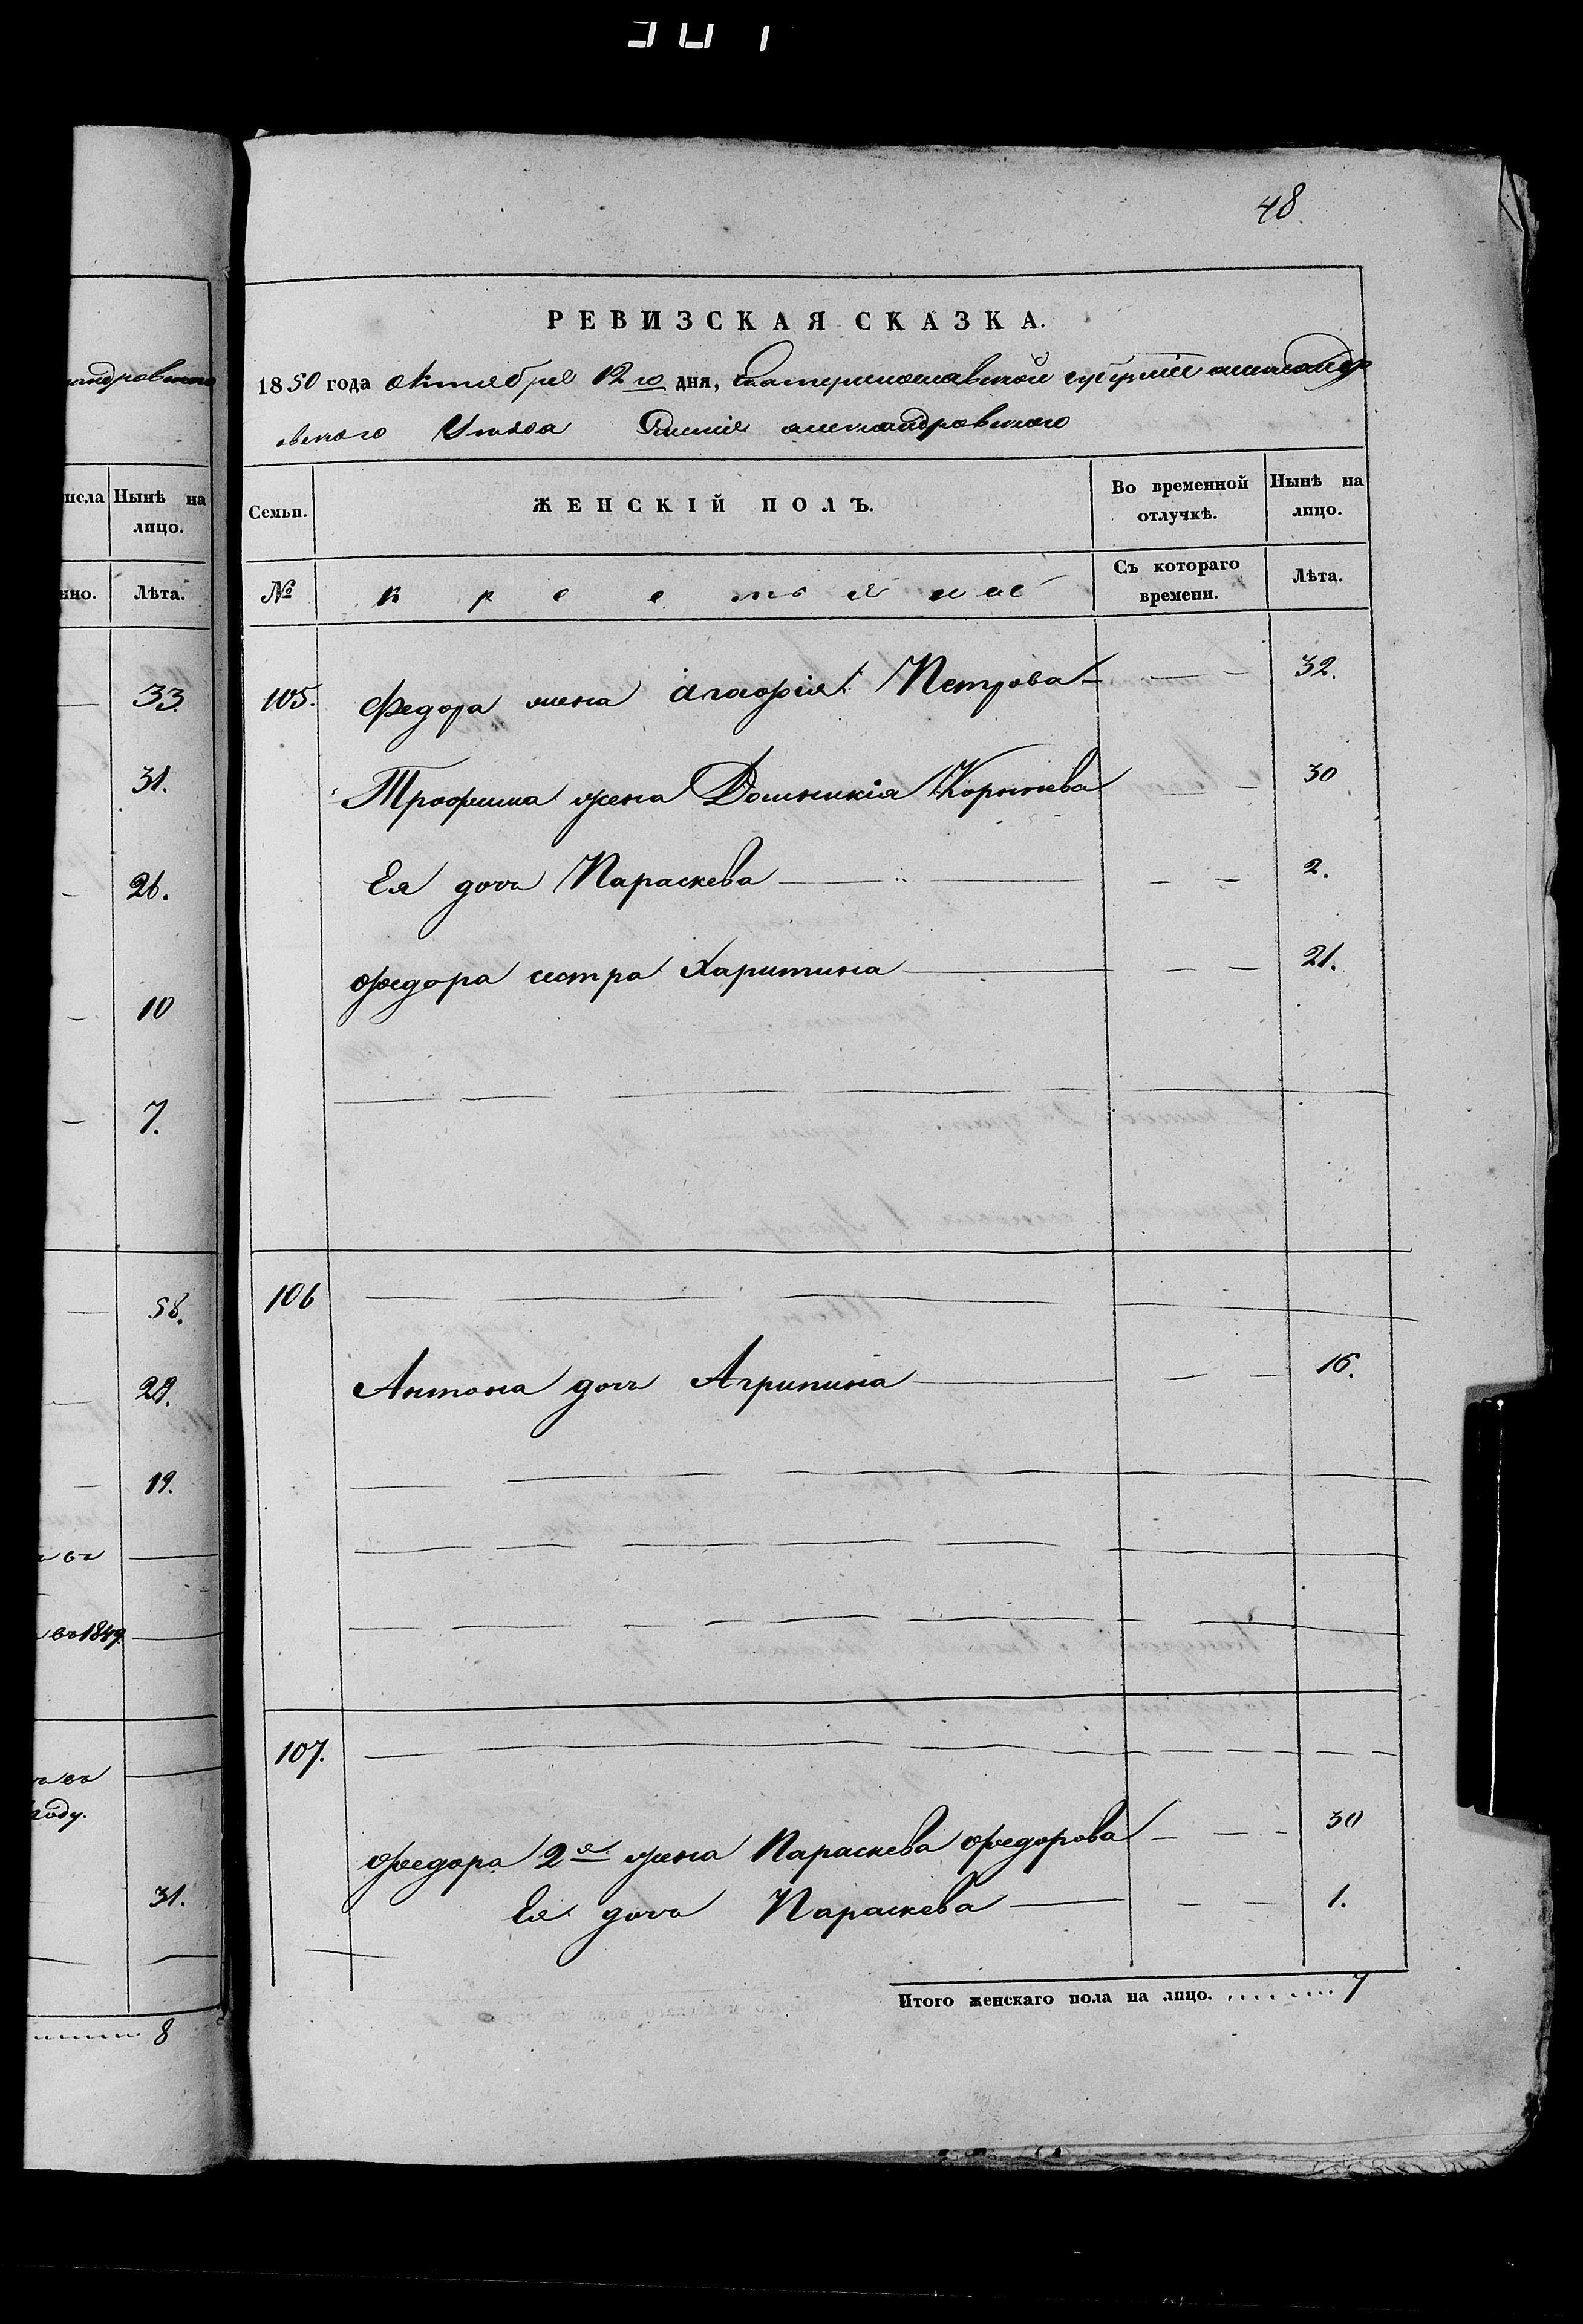 48
андровского
РЕВИЗСКАЯ СКАЗКА.
1850 года октября 12го дня, Екатеринославской губернии александр
овского Уезда Имения александровского
исла Нынѣ на лицо.
нно. Лѣта.
33.
31.
26.
10
7.
58.
29.
19.
въ
въ 1849
въ
году.
31.
8
Семьи. ЖЕНСКІЙ ПОЛЪ. Во временной отлучкѣ. Нынѣ на лицо.
№ крестьяне Съ котораго времени. Лѣта.
105. Федора жена Агафія Петрова 32.
Трофима жена Домникія Корнѣева 30
Ея дочь Параскева 2.
Федора сестра Харитина 21.
106
Антона дочь Агрипина 16.
107.
Федора 2я жена Параскева Федорова 30
Ея дочь Параскева 1.
Итого женскаго пола на лицо. ......... 7